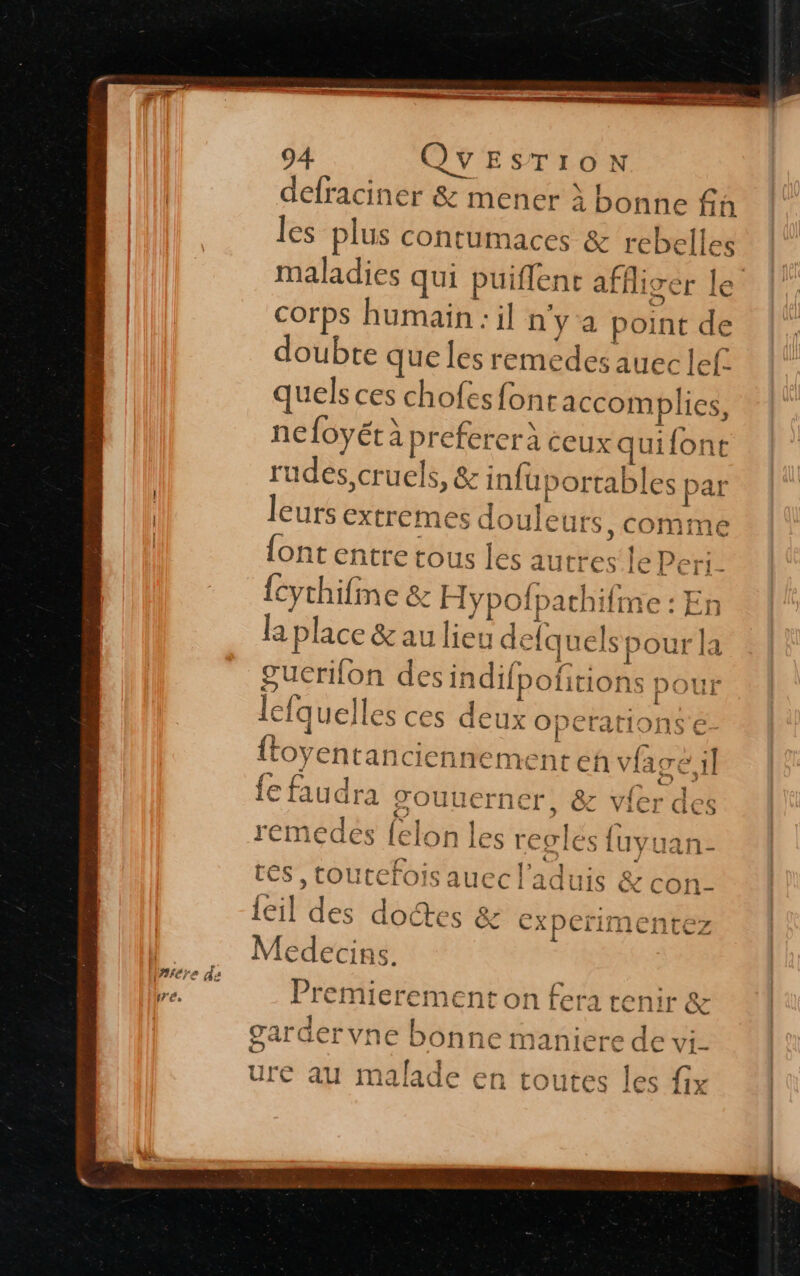 94 QVESTION
desraciner & mener à bonne fin
les plus contumaces & rebelles
maladies qui puissent affliger le
corps humain : il n'y a point de
doubte que les remedes auec les-
quels ces choses sont accomplies,
ne soyét à preferer à ceux qui sont
rudes, cruels, & insuportables par
leurs extremes douleurs, comme
sont entre tous les autres le Peri-
scythisme & Hypospathisme : En
la place & au lieu desquels pour la
guerison des indispositions pour
lesquelles ces deux operations e-
stoyent anciennement en vsage, il
se faudra gouuerner, & vser des
remedes selon les regles suyuan-
tes, toutefois auec l'aduis & con-
seil des doctes & experimentez
Medecins.
niere de
ure.
Premierement on fera tenir &
garder vne bonne maniere de vi-
ure au malade en toutes les six